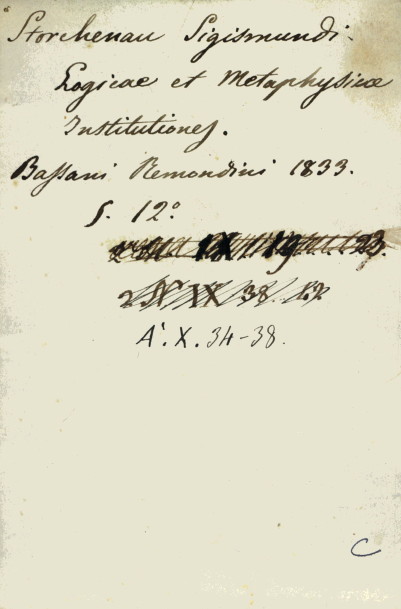 Storchenau Sigismundi.
Logicae et Metaphysicae
Institutiones.
Bassani Remondini 1833.
12°
IX 19 23.
IX 38
A'. X. 34-38.
C